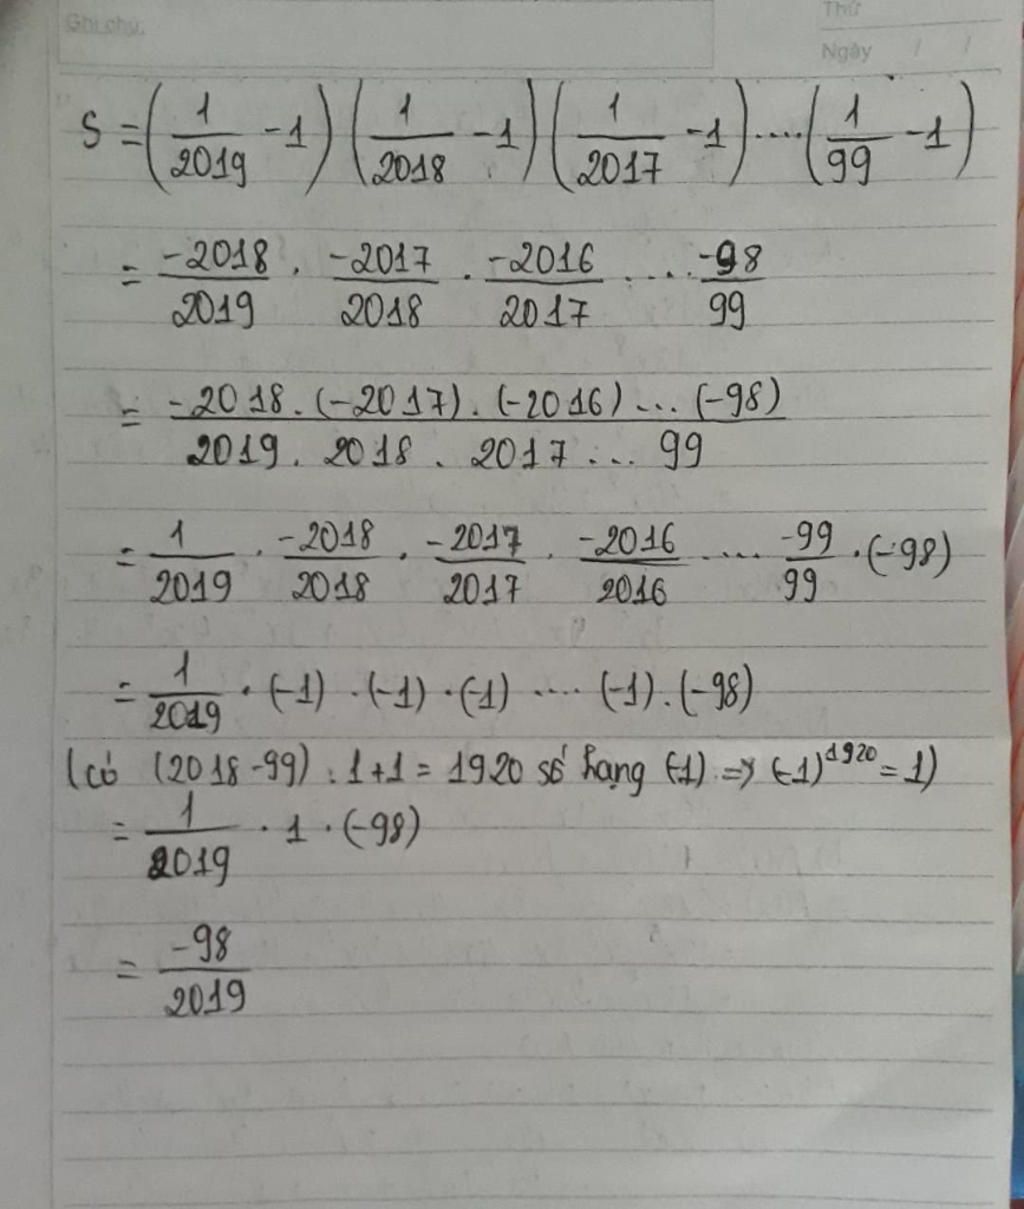 Ghi chú:
Thứ
Ngày / /
S = (1/2019 - 1) (1/2018 - 1) (1/2017 - 1) .... (1/99 - 1)
= -2018/2019 . -2017/2018 . -2016/2017 .... -98/99
= -2018 . (-2017) . (-2016) ... (-98) / 2019 . 2018 . 2017 ... 99
= 1/2019 . -2018/2018 . -2017/2017 . -2016/2016 .... -99/99 . (-98)
= 1/2019 . (-1) . (-1) . (-1) .... (-1) . (-98)
(có (2018 - 99) : 1 + 1 = 1920 số hạng (-1) => (-1)^1920 = 1)
= 1/2019 . 1 . (-98)
= -98/2019